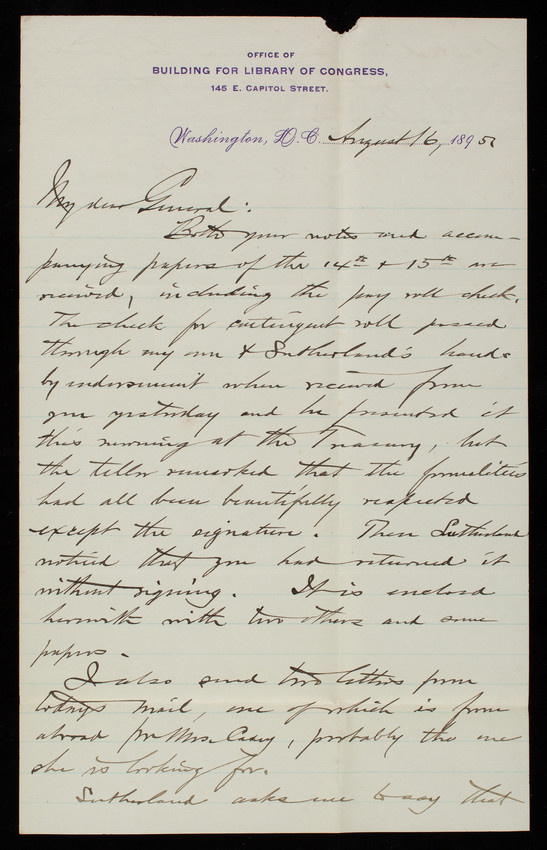 OFFICE OF
BUILDING FOR LIBRARY OF CONGRESS,
145 E. CAPITOL STREET.
Washington, D.C. August 16, 1895
My dear General:
Both your notes and accom-
panying papers of the 14th & 15th are
received, including the pay roll check.
The check for contingent roll passed
through my own & Sutherland's hands
by indorsement when received from
you yesterday and he presented it
this morning at the Treasury, but
the teller remarked that the formalities
had all been beautifully respected
except the signature. Then Sutherland
noticed that you had returned it
without signing. It is enclosed
herewith with two others and some
papers.
I also send two letters from
today's mail, one of which is from
abroad for Mrs. Casey, probably the one
she is looking for.
Sutherland asks me to say that